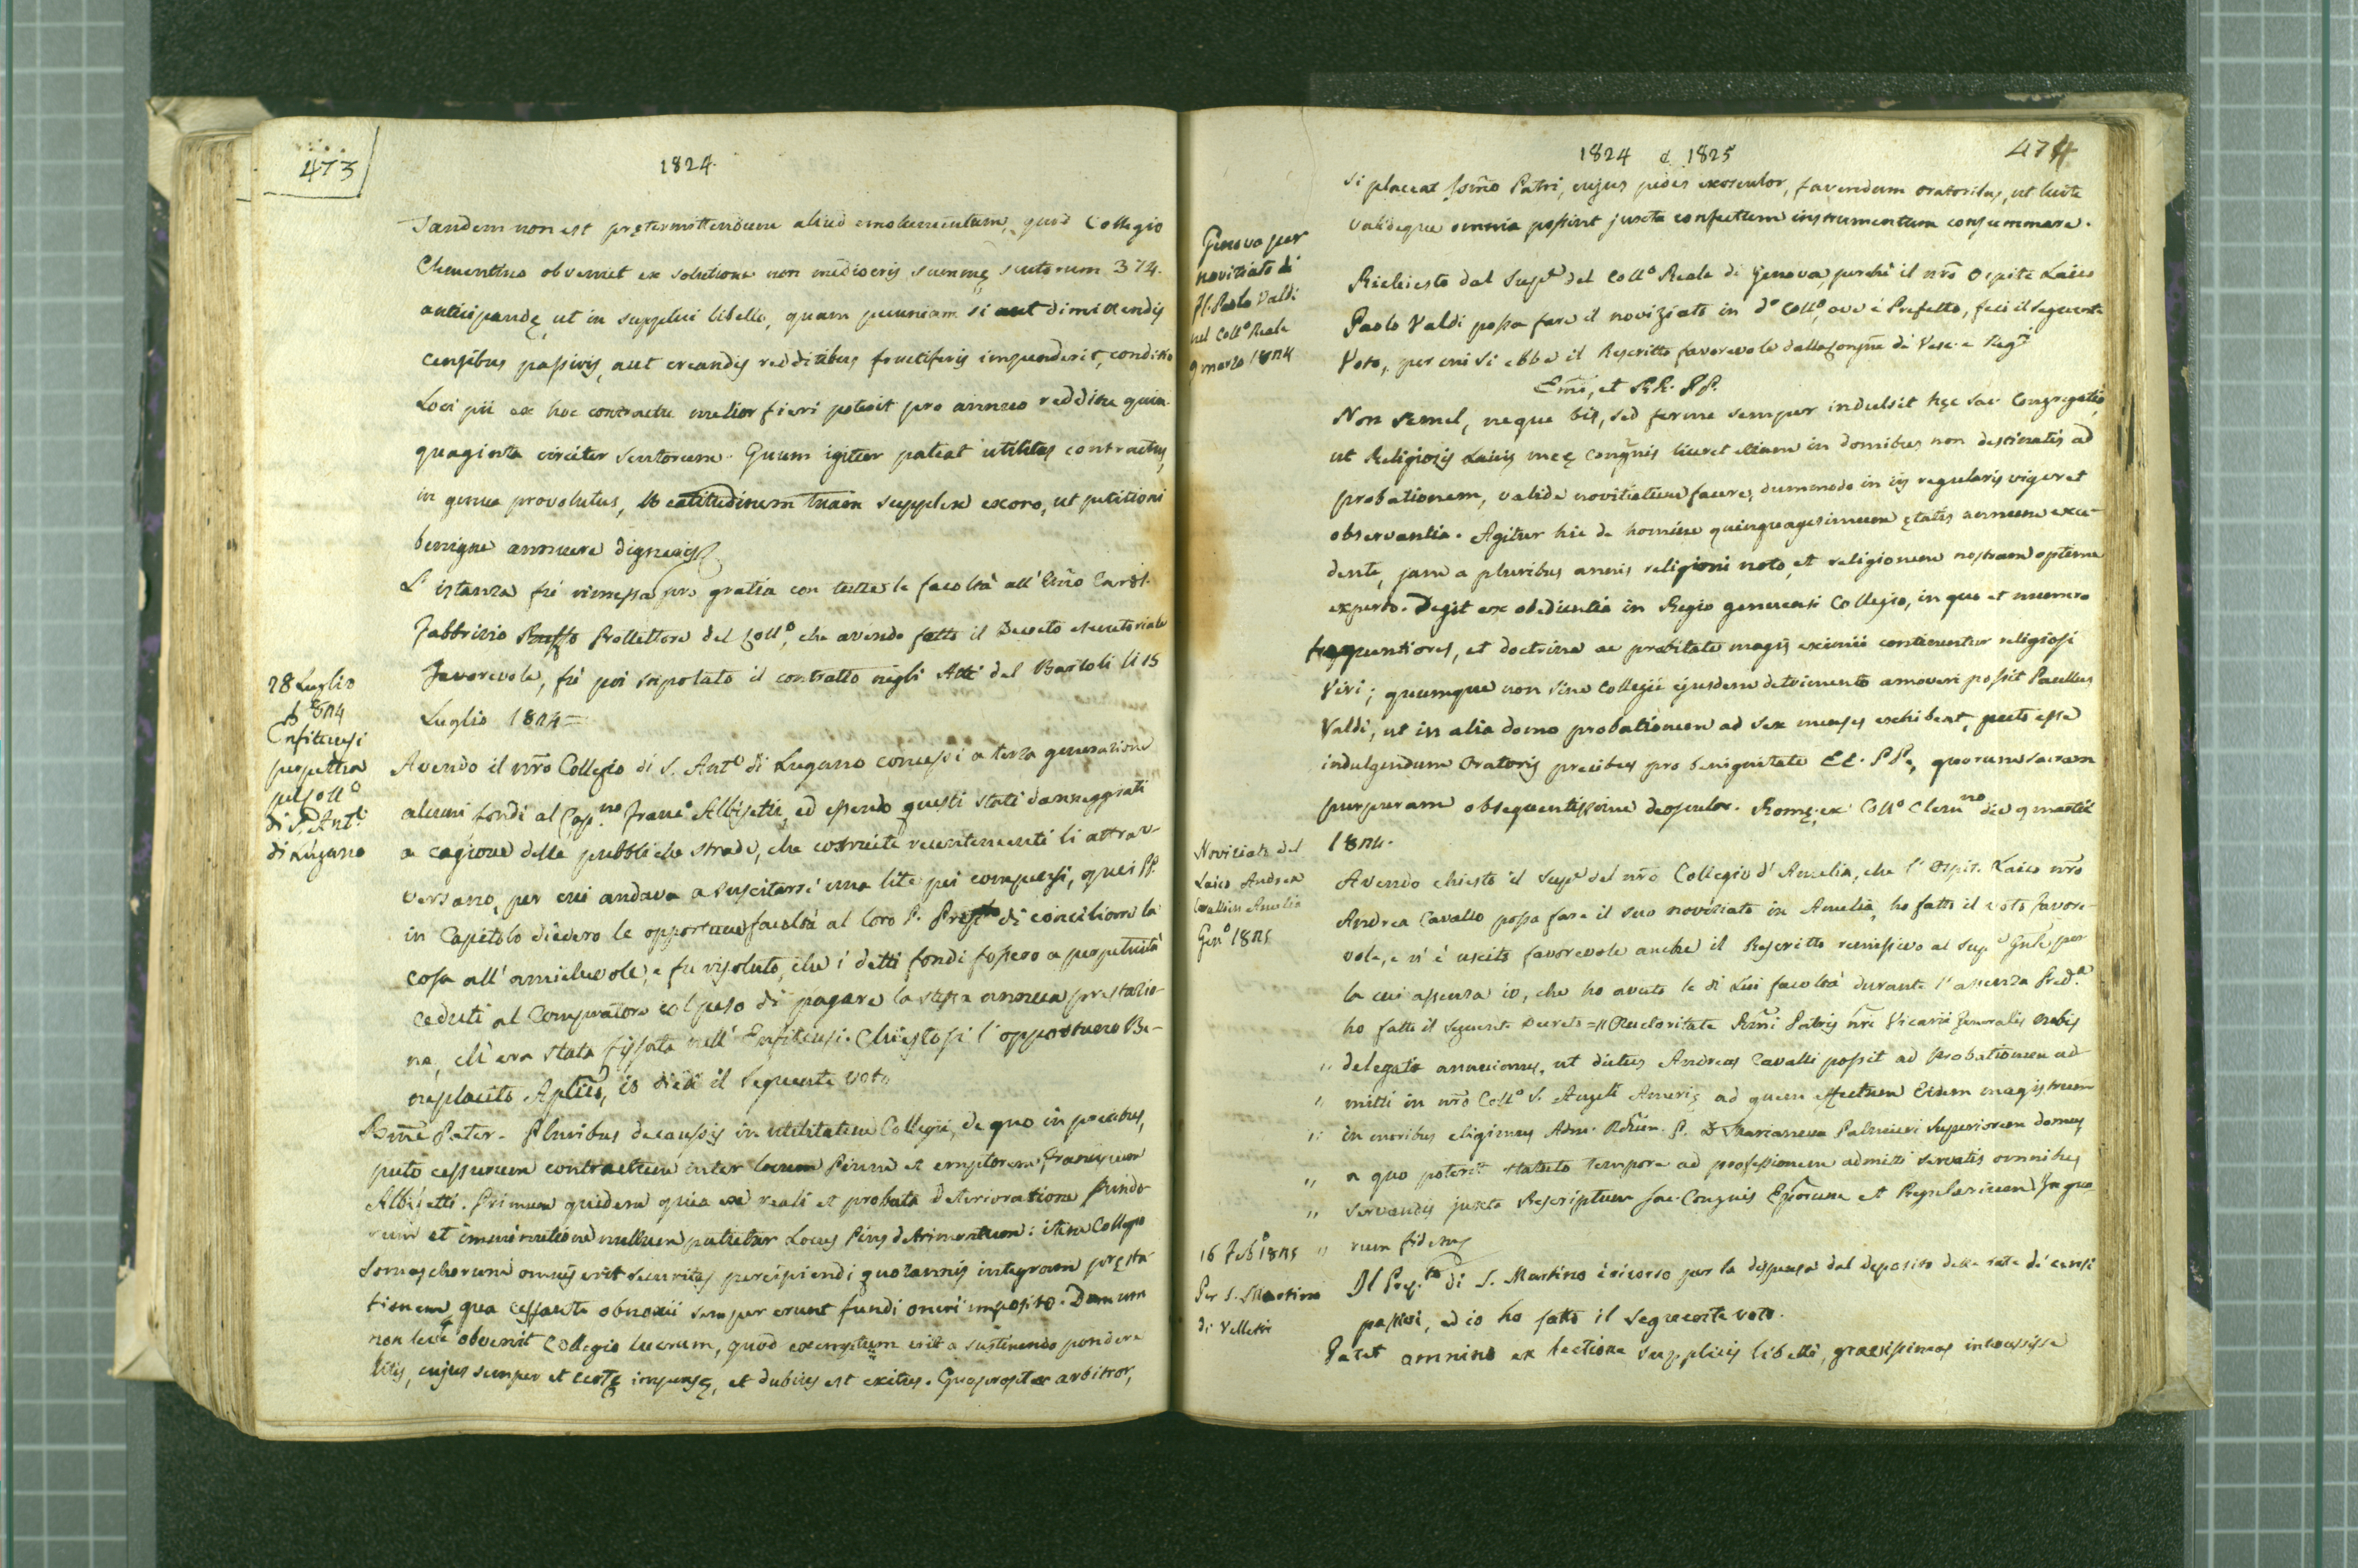 473
1824.
Tandem non est prętermittendum aliud emolumentum, quod Collegio
Clementino obveniet ex solutione non mediocris summę scutorum 374.
anticipandę, ut in supplici libello, quam pecuniam si aut dimittendis
censibus passivis, aut creandis redditibus fructiferis impenderit, conditio
Loci pii ex hoc contractu melior fieri poterit pro annuo redditu quin-
quaginta circiter scutorum. Quum igitur pateat utilitas contractus,
in genua provolutus, Beatitudinem tuam supplex exoro, ut petitioni
benigne annuere digneris
L'istanza fù rimessa pro gratia con tutte le facoltà all'Emo Card.
Fabbrizio Ruffo Protettore del Collo, che avendo fatto il Decreto esecutoriale
favorevole, fù poi stipolato il contratto negli Atti del Bartoli li 15
Luglio 1824=
28 Luglio
1824
Enfiteusi
perpetua
pel Collo
di S. Anto
di Lugano
Avendo il nro Collegio di S. Anto di Lugano concessi a terza generazione
alcuni fondi al Capno Franco Albisetti, ed essendo questi stati danneggiati
a cagione delle pubbliche strade, che costruite recentemente li attra-
versano, per cui andava a suscitarsi una lite pei compensi, quei PP.
in Capitolo diedero le opportune facoltà al loro P. Prepto di conciliare la
cosa all'amichevole; e fu risoluto, che i detti fondi fossero a perpetuità
ceduti al Compratore col peso di pagare la stessa annua prestazio-
ne, ch'era stata fissata nell'Enfiteusi. Chiestosi l'opportuno Be-
neplacito Aplico, io diedi il seguente voto
Bme Pater. Pluribus de caussis in utilitatem Collegii, de quo in precibus,
puto cessurum contractum inter locum Pium et emptorem Franciscum
Albisetti. Primum quidem quia ex reali et probata deterioratione fundo-
rum et imminutione nullum patietur Locus Pius detrimentum: item Collegio
Somaschorum omnis erit securitas percipiendi quotannis integram pręsta-
tionem, qua cessante obnoxii semper erunt fundi oneri imposito. Demum
non leve obveniet Collegio lucrum, quod exemptum erit a sustinendo pondere
litis, cujus semper et certę impensę, et dubius est exitus. Quapropter arbitror,
1824 e 1825
474
si placeat Ssmo Patri, cujus pedes exosculor, favendum oratoribus, ut licite
valideque omnia possint juxta confectum instrumentum consummare.
Genova per
noviziato di
Fr. Paolo Valdi
nel Collo Reale
9 marzo 1824
Richiesto dal Supre del Collo Reale di Genova, perchè il nro Ospite Laico
Paolo Valdi possa fare il noviziato in do Collo, ove è Prefetto, feci il seguente
Voto, per cui si ebbe il Rescritto favorevole dalla Congne di Vesc. e Regri
Emi, et RR. PP.
Non semel, neque bis, sed ferme semper indulsit hęc Sac. Congregatio,
ut Religiosis Laicis meę Congnis liceret etiam in domibus non destinatis ad
probationem, valide novitiatum facere, dummodo in iis regularis vigeret
observantia. Agitur hic de homine quinquagesimum ętatis annum exce-
dente, jam a pluribus annis religioni noto, et religionem nostram optime
experto. Degit ex obedientia in Regio genuensi Collegio, in quo et numero
frequentiores, et doctrina ac probitate magis eximii continentur religiosi
Viri; quumque non sine Collegii ejusdem detrimento amoveri possit Paullus
Valdi, ut in alia domo probationem ad sex menses exhibeat, puto esse
indulgendum Oratoris precibus pro benignitate EE. PP., quorum sacram
purpuram obsequentissime deosculor. Romę ex Collo Clemno die 9 martii
1824.
Noviziato del
Laico Andrea
Cavalli in Amelia
Geno 1825
Avendo chiesto il Supre del nro Collegio d'Amelia, che l'Ospit. Laico nro
Andrea Cavallo possa fare il suo noviziato in Amelia, ho fatto il voto favore-
vole, e n'è uscito favorevole anche il Rescritto remissivo al Supe Gnle per
la cui assenza io, che ho avute le di Lui facoltà durante l'assenza Preda
ho fatto il seguente Decreto =" Auctoritate Rmi Patris nri Vicarii Generalis nobis
" delegata annuimus, ut dictus Andreas Cavalli possit ad probationem ad-
" mitti in nro Collo S. Angeli Amerię ad quem effectum Eidem magistrum
" in moribus eligimus Adm. Rdum. P. D. Marianum Palmieri Superiorem domus,
" a quo poterit statuto tempore ad professionem admitti servatis omnibus
" servandis juxta Rescriptum Sac. Congnis Eporum et Regularium. In quo-
" rum fidem
16 Febo 1825
Per S. Martino
di Velletri
Il Prepto di S. Martino è ricorso per la dispensa dal deposito delle rate di censi
passivi, ed io ho fatto il seguente voto.
Patet omnino ex lectione supplicis libelli, gravissimas intercessisse